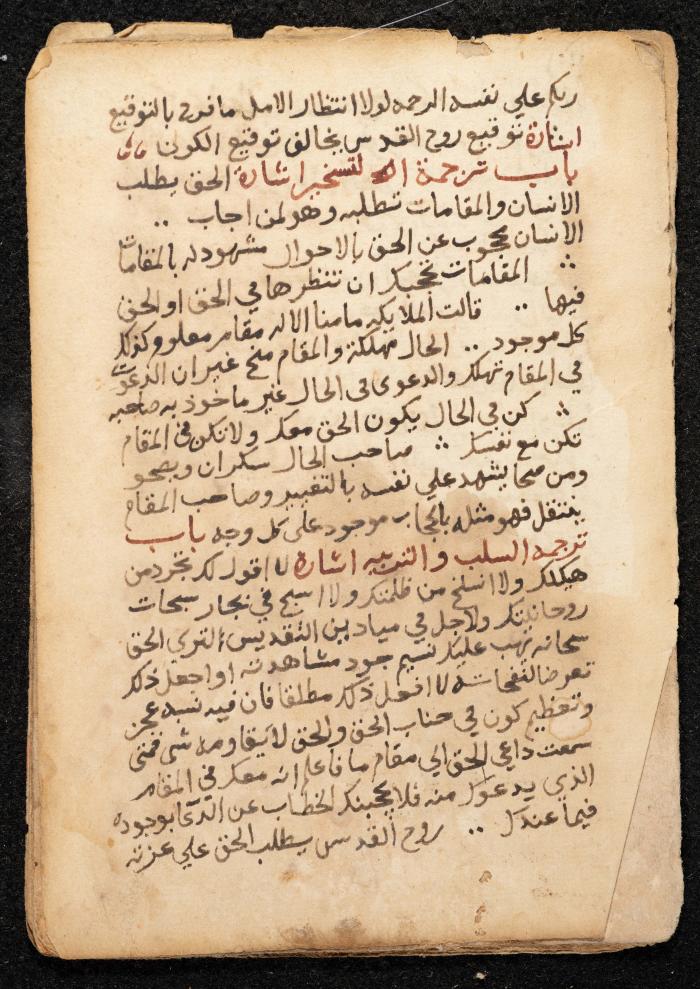 ربكم علي نفسه الرحمه لولا انتظار الامل ما فرح بالتوقيع
اشارة توقيع روح القدس يخالف توقيع الكون
باب ترجمة التسخير اشارة الحق يطلب
الانسان والمقامات تطلبه وهو لمن اجاب ..
الانسان محجوب عن الحق بالاحوال مشهود له بالمقامات
المقامات تحجبك ان تنظرها في الحق او الحق
فيها .. قالت الملايكه ما منا الا له مقام معلوم وكذلك
كل موجود .. الحال مهلكة والمقام منج غير ان الدعوي
في المقام تهلك والدعوى في الحال غير ماخوذ به صاحبه
كن في الحال يكون الحق معك ولا تكن في المقام
تكن مع نفسك صاحب الحال سكران ويصحو
ومن صحا يشهد علي نفسه بالتغيير وصاحب المقام
ينتقل فهو مثله بالحجاب موجود على كل وجه باب
ترجمه السلب والتنزيه اشارة لا اقول لك تجرد من
هيكلك ولا انسلخ من ظلمتك ولا اسبح في بحار سبحات
روحانيتك ولا جل في ميادين التقديس التري الحق
سبحانه يهب عليك نسيم جود مشاهدته او اجعل ذلك
تعرضا لنفحاته لا افعل ذلك مطلقا فان فيه نسبه عجز
وتعظيم كون في جناب الحق والحق لا يقاومه شي فمتي
سمعت داعي الحق الي مقام ما فاعلم انه معك في المقام
الذي يدعوك منه فلا يحجبنك الخطاب عن الدعا بوجوده
فيما عندك .. روح القدس يطلب الحق علي عزته